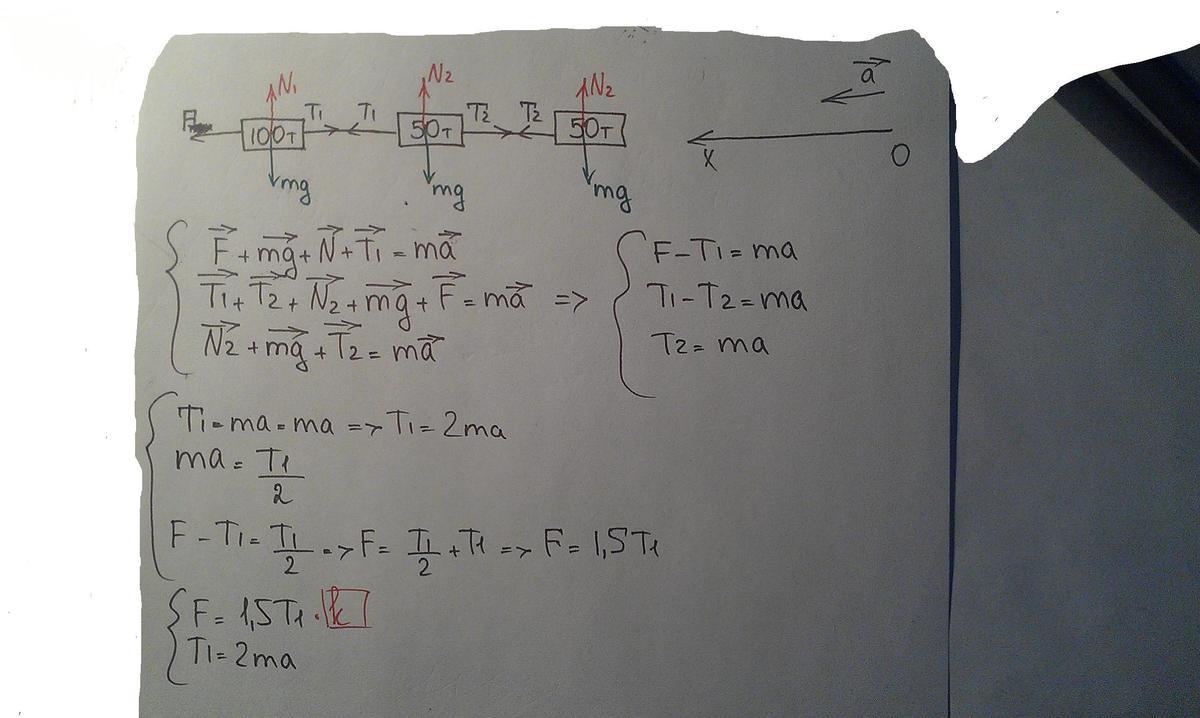 N₁ N₂ N₂ a⃗
F T₁ T₁ T₂ T₂
100т 50т 50т
X O
mg mg mg
F⃗ + mg⃗ + N⃗ + T⃗₁ = ma⃗
T⃗₁ + T⃗₂ + N⃗₂ + mg⃗ + F⃗ = ma⃗ =>
N⃗₂ + mg⃗ + T⃗₂ = ma⃗
F - T₁ = ma
T₁ - T₂ = ma
T₂ = ma
T₁ - ma = ma => T₁ = 2ma
ma = T₁/2
F - T₁ = T₁/2 => F = T₁/2 + T₁ => F = 1,5T₁
F = 1,5T₁ · k
T₁ = 2ma